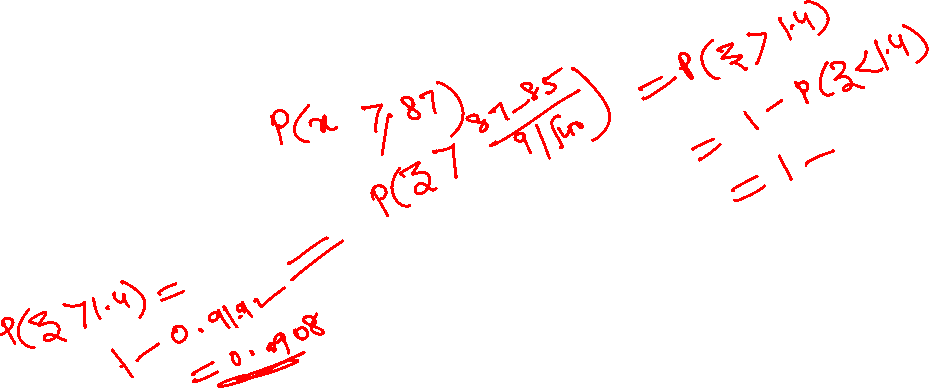 P(x 7, 87)
= P(z > 87-85 / 9/√40)
= P(z > 1.4)
= 1 - P(z < 1.4)
= 1 -
P(z > 1.4) =
1 - 0.9192
= 0.0908